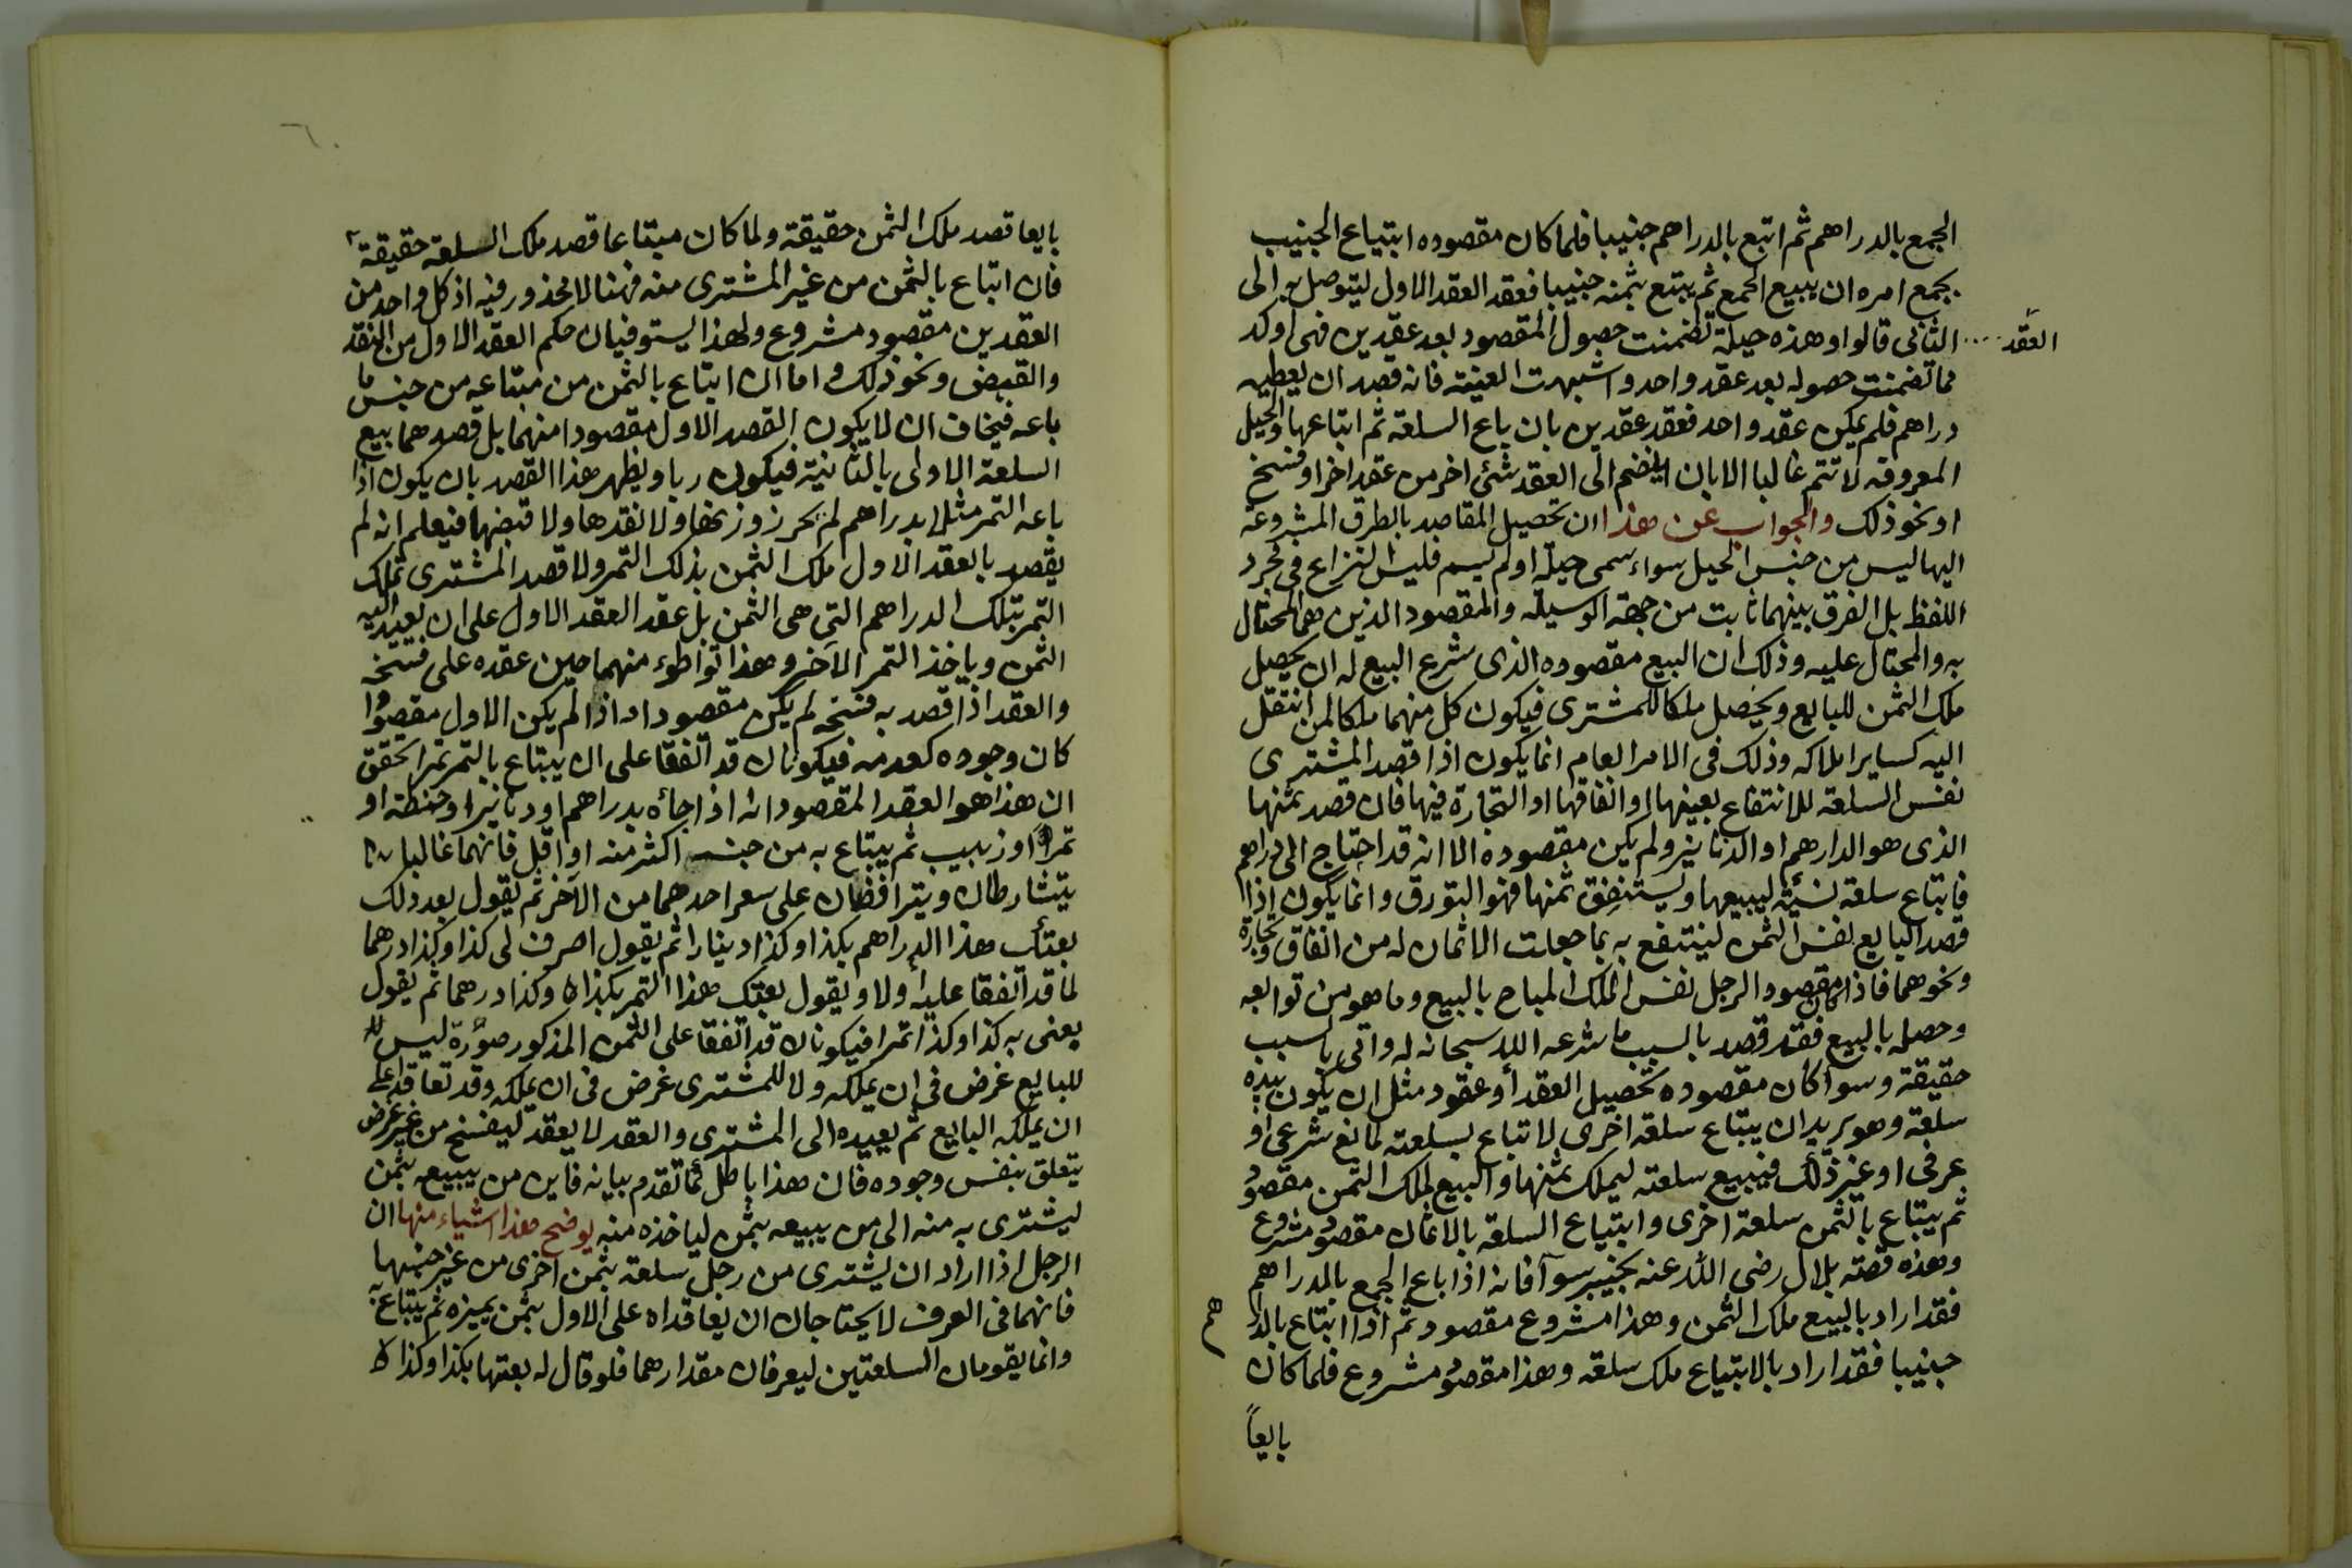 الجمع بالدراهم ثم اتبع بالدراهم جنيبا فلما كان مقصوده ابتياع الجنيب
بجمع امره ان يبيع الجمع ثم يبتع بثمنه جنيبا فعقد العقد الاول ليتوصل به الى
العقد الثانى قالوا وهذه حيلة تضمنت حصول المقصود بعد عقدين فهى اوكد
مما تضمنت حصوله بعد عقد واحد واشبهت العينة فانه قصد ان يعطيه
دراهم فلم يمكن عقد واحد فعقد عقدين بان باع السلعة ثم ابتاعها والحيل
المعروفه لا تتم غالبا الا بان ينضم الى العقد شئ اخر من عقد اخر او فسخ
او نحو ذلك والجواب عن هذا ان تحصيل المقاصد بالطرق المشروعة
اليها ليس من جنس الحيل سواء سمى حيلة او لم يسم فليس النزاع فى مجرد
اللفظ بل الفرق بينهما ثابت من جهة الوسيلة والمقصود الذين هما المحتال
به والمحتال عليه وذلك ان البيع مقصوده الذى شرع البيع له ان يحصل
ملك الثمن للبايع ويحصل ملكا للمشترى فيكون كل منهما ملكا لمن انتقل
اليه كساير املاكه وذلك فى الامر العام انما يكون اذا قصد المشترى
نفس السلعة للانتفاع بعينها او انفاقها او التجارة فيها فان قصد ثمنها
الذى هو الدارهم او الدنانير ولم يكن مقصوده الا انه قد احتاج الى دراهم
فابتاع سلعة نسئة ليبيعها ويستنفق ثمنها فهو التورق وانما يكون اذا
قصد البايع نفس الثمن لينتفع به بما جعلت الاثمان له من انفاق وتجارة
ونحوهما فاذا كان مقصود الرجل نفس الملك المباح بالبيع وما هو من توابعه
وحصله بالبيع فقد قصد بالسبب ما شرعه الله سبحانه له واتى بالسبب
حقيقة وسوا كان مقصوده تحصيل العقد او عقود مثل ان يكون بيده
سلعة وهو يريد ان يبتاع سلعة اخرى لا تباع بسلعته لمانع شرعى او
عرفى او غير ذلك فيبيع سلعته ليملك ثمنها والبيع لملك الثمن مقصود
ثم يبتاع بالثمن سلعة اخرى وابتياع السلعة بالاثمان مقصود مشروع
وهذه قصة بلال رضى الله عنه بخيبر سوآ فانه اذا باع الجمع بالدراهم
فقد اراد بالبيع ملك الثمن وهذا مشروع مقصود ثم اذا ابتاع بالدراهم
جنيبا فقد اراد بالابتياع ملك سلعة وهذا مقصود مشروع فلما كان
بايعاً
بايعا قصد ملك الثمن حقيقة ولما كان مبتاعا قصد ملك السلعة حقيقة
فان ابتاع بالثمن من غير المشترى منه فهنا لا محذور فيه اذ كل واحد من
العقدين مقصود مشروع ولهذا يستوفيان حكم العقد الاول من النقد
والقبض ونحو ذلك واما ان ابتاع بالثمن من مبتاعه من جنس ما
باعه فيخاف ان لا يكون القصد الاول مقصودا منهما بل قصدهما بيع
السلعة الاولى بالثانية فيكون ربا ويظهر هذا القصد بان يكون اذا
باعه التمر مثلا بدراهم لم يحرز وزنها ولا نقدها ولا قبضها فيعلم انه لم
يقصد بالعقد الاول ملك الثمن بذلك التمر ولا قصد المشترى تملك
التمر بتلك الدراهم التى هى الثمن بل عقد العقد الاول على ان يعيد اليه
الثمن وياخذ التمر الآخر وهذا تواطوء منهما حين عقده على فسخه
والعقد اذا قصد به فسخه لم يكن مقصودا واذا لم يكن الاول مقصودا
كان وجوده كعدمه فيكونان قد اتفقا على ان يبتاع بالتمر تمرا يحقق
ان هذا هو العقد المقصود انه اذا جاءه بدراهم او دنانير او حنطة او
تمر او زبيب ثم يبتاع به من جنسه اكثر منه او اقل فانهما غالبا
يتشارطان ويتراضان على سعر احدهما من الآخر ثم يقول بعد ذلك
بعتك هذا الدراهم بكذا وكذا دينارا ثم يقول اصرف لى كذا وكذا درهما
لما قد اتفقا عليه أولا ويقول بعتك هذا التمر بكذا وكذا درهما ثم يقول
بعنى به كذا وكذا تمرا فيكونان قد اتفقا على الثمن المذكور صورة ليس
للبايع غرض فى ان يملكه ولا للمشترى غرض فى ان يملكه وقد تعاقدا على
ان يملكه البايع ثم يعيده الى المشترى والعقد لا يعقد ليفسخ من غير غرض
يتعلق بنفس وجوده فان هذا باطل كما تقدم بيانه فاين من يبيعه بثمن
ليشترى به منه الى من يبيعه بثمن لياخذه منه يوضح هذا اشياء منها ان
الرجل اذا اراد ان يشترى من رجل سلعة بثمن اخرى من غير جنسها
فانهما فى العرف لا يحتاجان ان يعاقداه على الاول بثمن يميزه ثم يبتاع به
وانما يقومان السلعتين ليعرفان مقدارهما فلو قال له بعتها بكذا وكذا